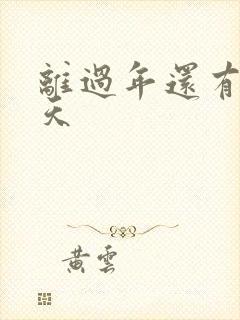 離過年還有
天
黃雲